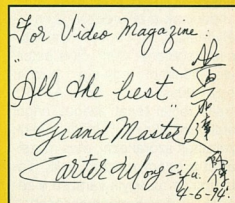 For Video Magazine:
"All the best"
Grand Master
Carter Wong Sifu.
4-6-94.